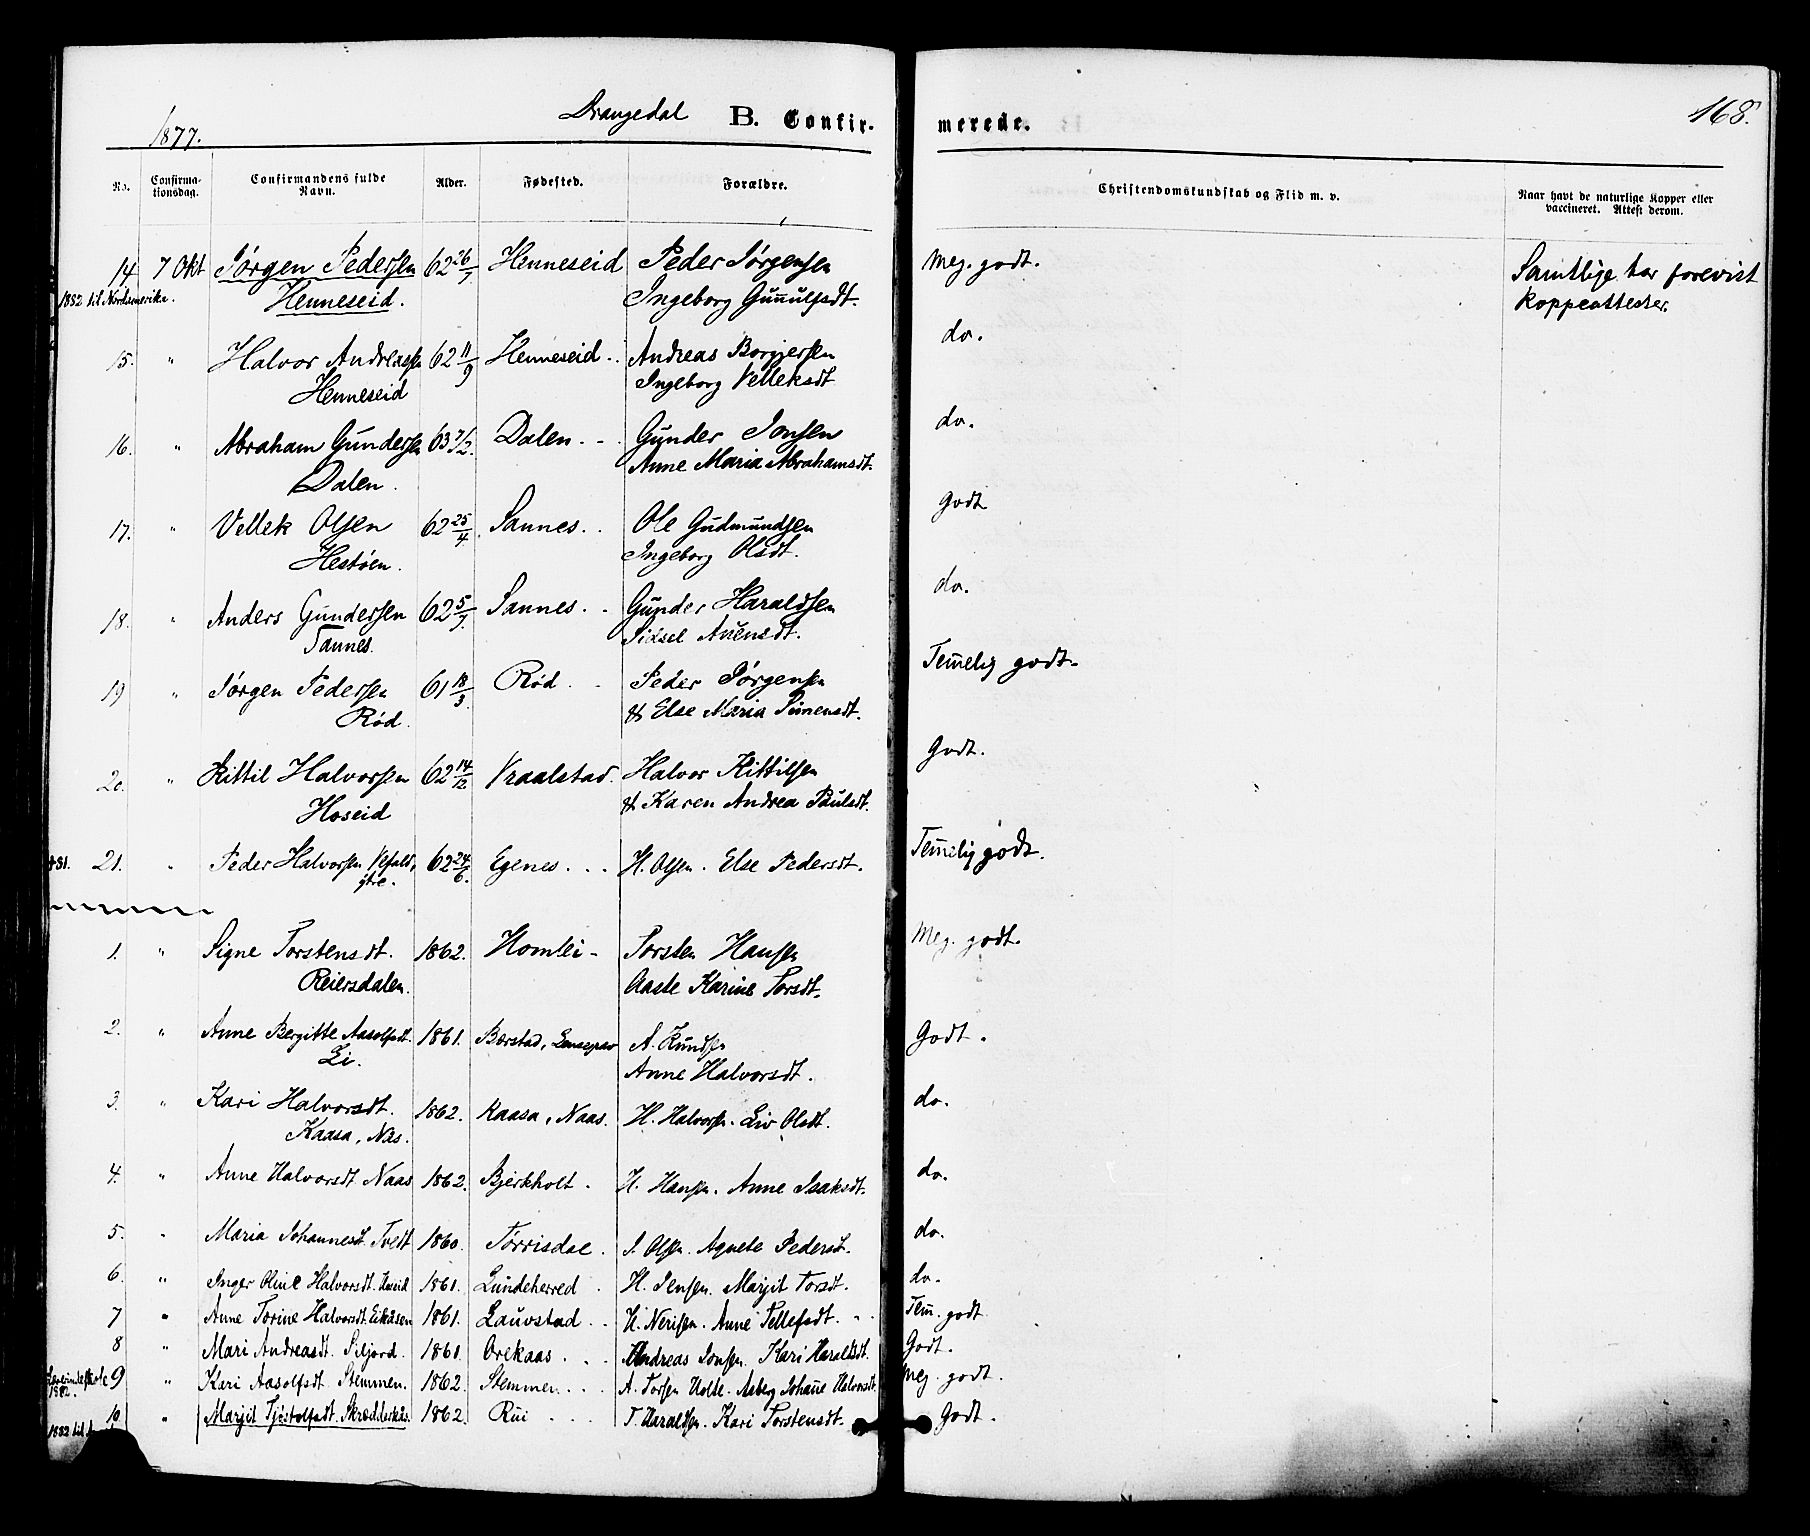 1877.
Drangedal B. Confir-
merede.
168.
No.
Confirma-
tionsdag.
Confirmandens fulde
Navn.
Alder.
Fødested.
Forældre.
Christendomskundskab og Flid m. v.
Naar havt de naturlige Kopper eller
vaccineret. Attest derom.
14. 7 Okt Jørgen Pedersen 62 26/7 Henneseid Peder Jørgensen Meg. godt. Samtlige har forevist
1882 til Nordamerika. Henneseid. Ingeborg Gunnulfsdt. Koppeattester.
15. " Halvor Andreassen 62 11/9 Henneseid Andreas Borgersen do.
Henneseid Ingeborg Velleksdt
16. " Abraham Gundersen 63 7/2. Dalen Gunder Jonsen do.
Dalen. Anne Maria Abrahamsdt.
17. " Vellek Olsen 62 25/4. Sannes Ole Gudmundsen Godt
Hestøen. Ingeborg Olsdt.
18. " Anders Gundersen 62 5/7. Sannes Gunder Haraldsen do.
Sannes. Sidsel Auensdt.
19 " Jørgen Pedersen 61 18/3. Rød Peder Jørgensen Temelig godt.
Rød. & Else Maria Simensdt.
20. " Kittil Halvorsen 62 14/12. Vraalstad. Halvor Kittilsen Godt.
Hoseid & Karen Andrea Paulsdt.
+81. 21. " Peder Halvorsen Vefald, 62 24/6. Egenes H. Olsen. Else Pedersdt. Temelig godt.
ytre.
1. " Signe Torstensdt. 1862. Homlei Torsten Hansen Meg. godt.
Reiersdalen. Aaste Karine Torsdt.
2. " Anne Bergitte Aasolfsdt. 1861. Bærstad, A. Knudsen Godt.
Li. Anne Halvorsdt.
3. " Kari Halvorsdt. 1862. Kaasa, Naas. H. Halvorsen. Liv Olsdt. do.
Kaasa, Nas.
4. " Anne Halvorsdt Naas 1862. Bjerkholt H. Hansen. Anne Isaksdt. do.
5. " Maria Johannesdt. Tvedt 1860. Tørrisdal J. Olsen. Agnete Pedersdt. do.
6. " Inger Oline Halvorsdt. 1861. Lundeherred H. Jensen. Marjit Torsdt. do.
7 " Anne Torine Halvorsdt. Eikåsen 1861. Lauvstad H. Nerisen. Anne Tellefsdt. Tem. godt
8 " Mari Andreasdt. Siljord. 1861. Orekaas Andreas Jonsen Kari Haraldsdt. Godt.
9 " Kari Aasolfsdt Stemmen. 1862. Stemmen A. Torsen Holte. Asberg Johanne Halvorsdt. Meg. godt.
1882.
10. " Marjit Tjøstolfsdt. Skrædderkås. 1862. Rui T. Haraldsen. Kari Torstensdt. Godt.
1882 til